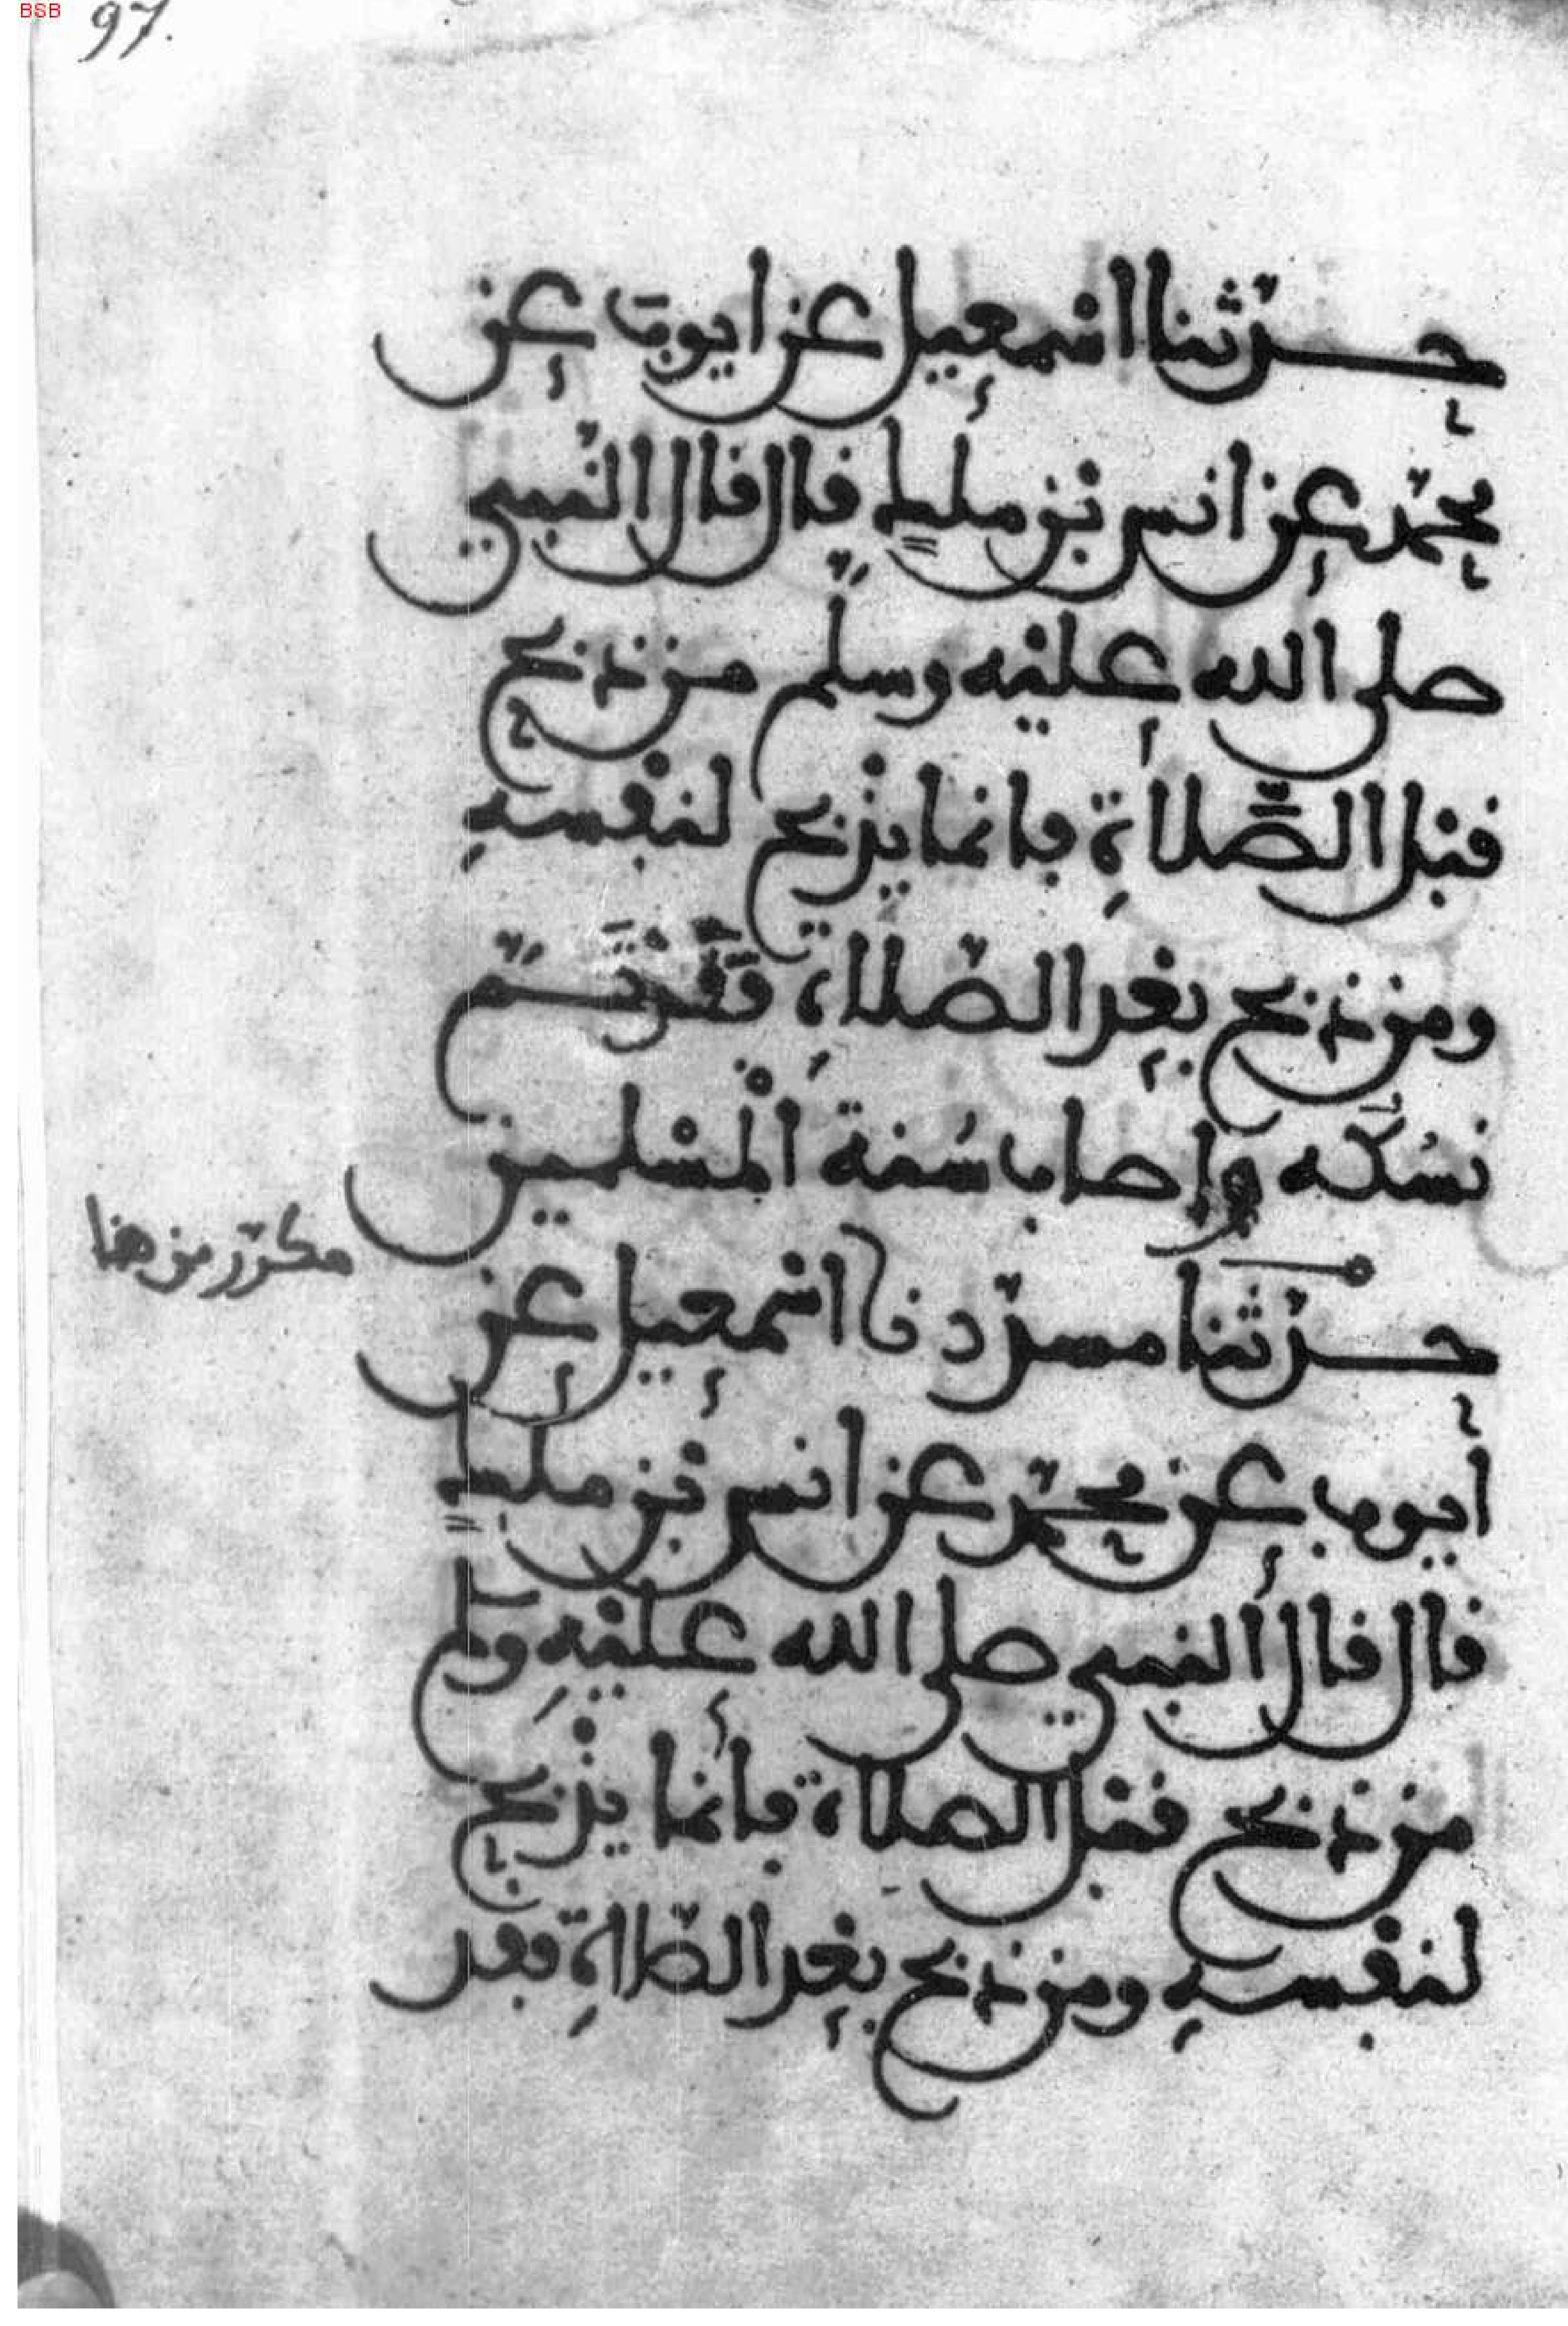 BSB
97.
حدّثنا اسمعيل عن ايوب عن
محمّد عن انس بن ملك قال قال النّبي
صلى الله عليه وسلّم من ذبح
قبل الصّلاةِ فانما يذبح لنفسهِ
ومن ذبح بعد الصّلاةِ فَقَدْ تَمّ
نسُكه واصاب سُنة الْمسْلمين
حدّثنا مسدّد نا اسْمعيل عن
أيوب عن محمّد عن انس بن ملك
قال قال ألنبي صلى الله عليْهِ وسلم
من ذبح قبْل الصلاة فأنما يذْبح
لنفْسهِ ومن ذبح بعْد الصّلاةِ فقد
مكرّر من هنا